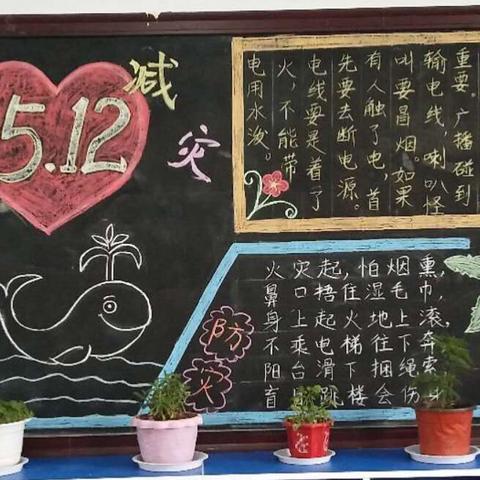 5.12
减
灾
重要。广播碰到
输电线,喇叭怪
叫要冒烟。如果
有人触了电,首
先要去断电源。
电线要是着了
火,不能带
电用水泼。
防
火
火灾起,怕烟熏,
鼻口捂住湿毛巾,
身上起火地上滚,
不乘电梯往下奔,
阳台滑下捆绳索,
盲目跳楼会伤身